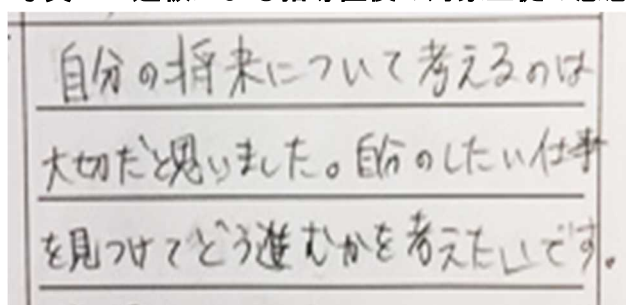 自分の将来について考えるのは
大切だと思いました。自分のしたい仕事
を見つけてどう進むかを考えたいです。